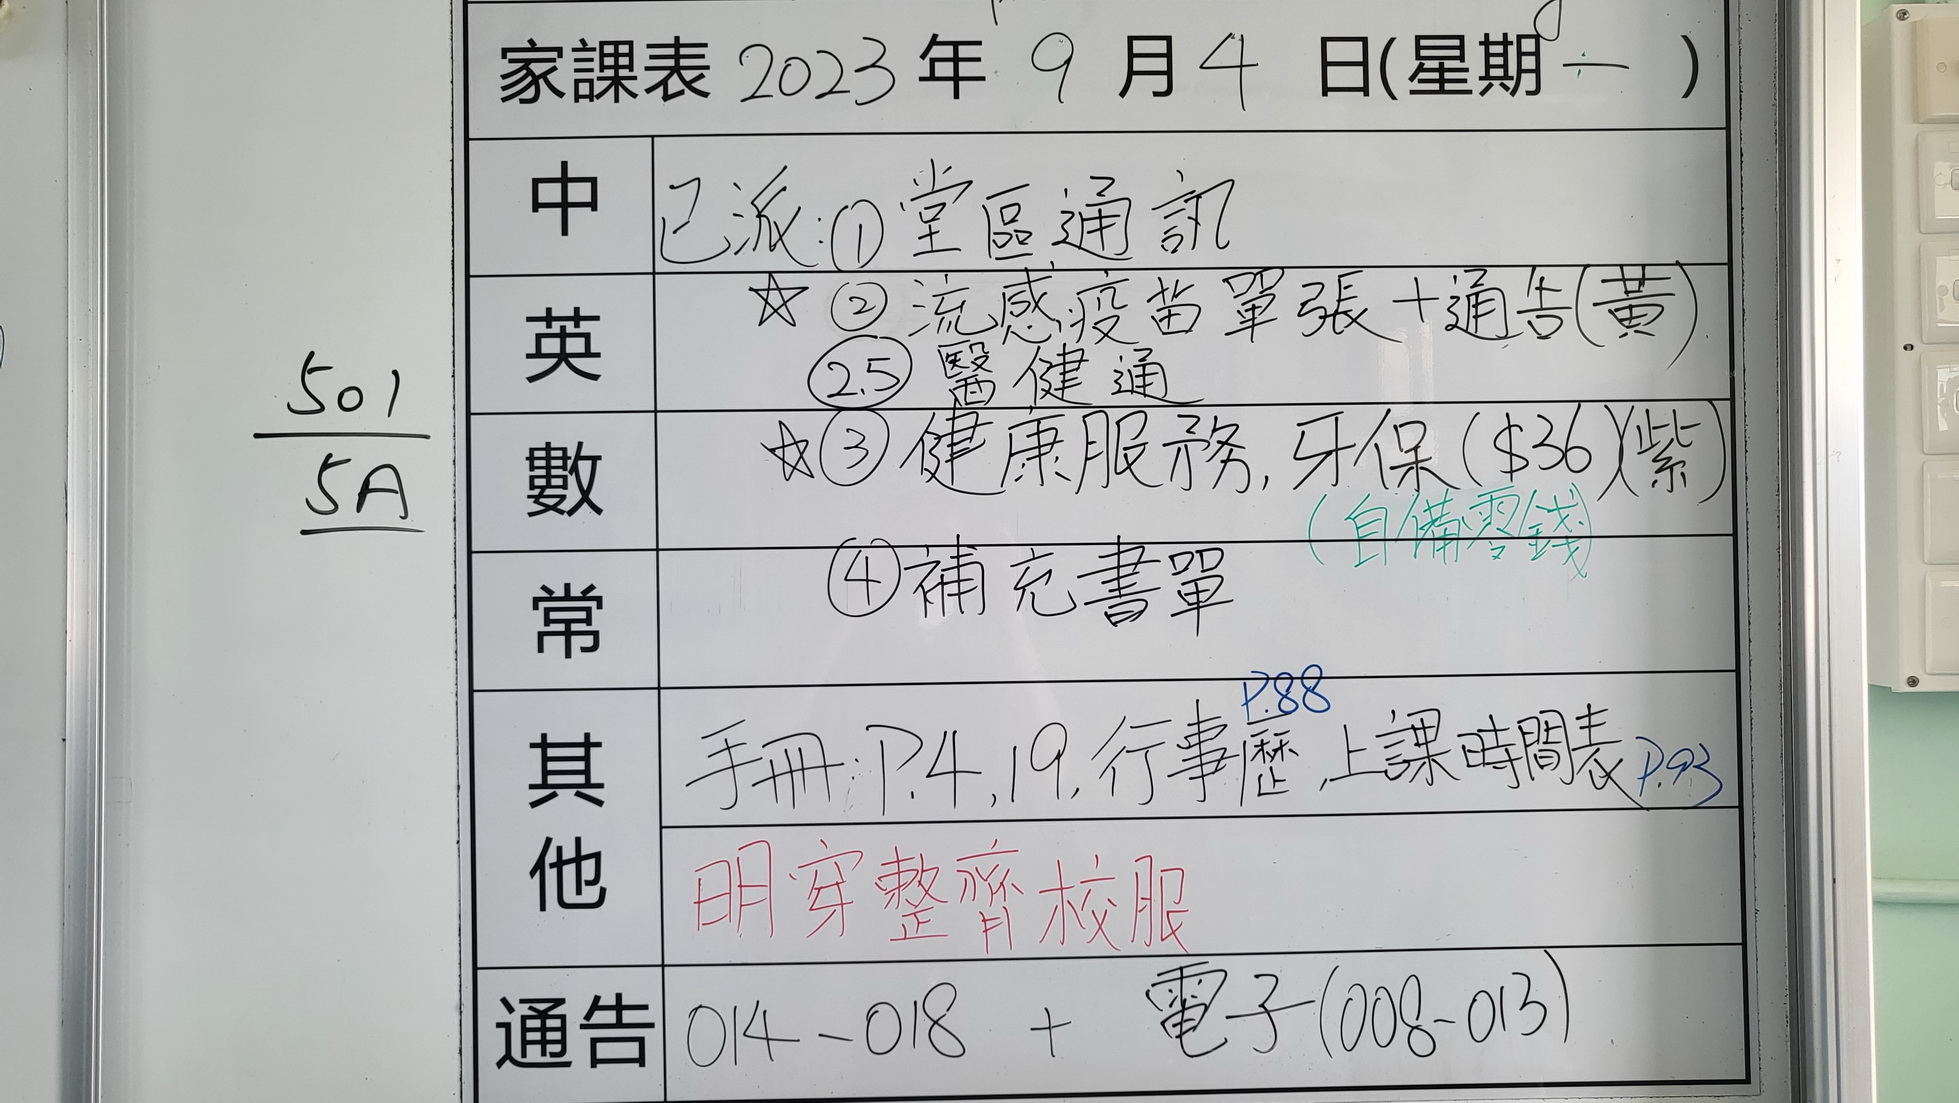 家課表 2023 年 9 月 4 日(星期一)
中 已派:①堂區通訊
英 ☆②流感疫苗單張+通告(黃)
2.5 醫健通
數 ☆③健康服務,牙保($36)(紫)
(自備零錢)
501
5A
常 ④補充書單
P.88
其他 手冊:P.4,19,行事歷,上課時間表 P.93
明穿整齊校服
通告 014-018 + 電子(008-013)